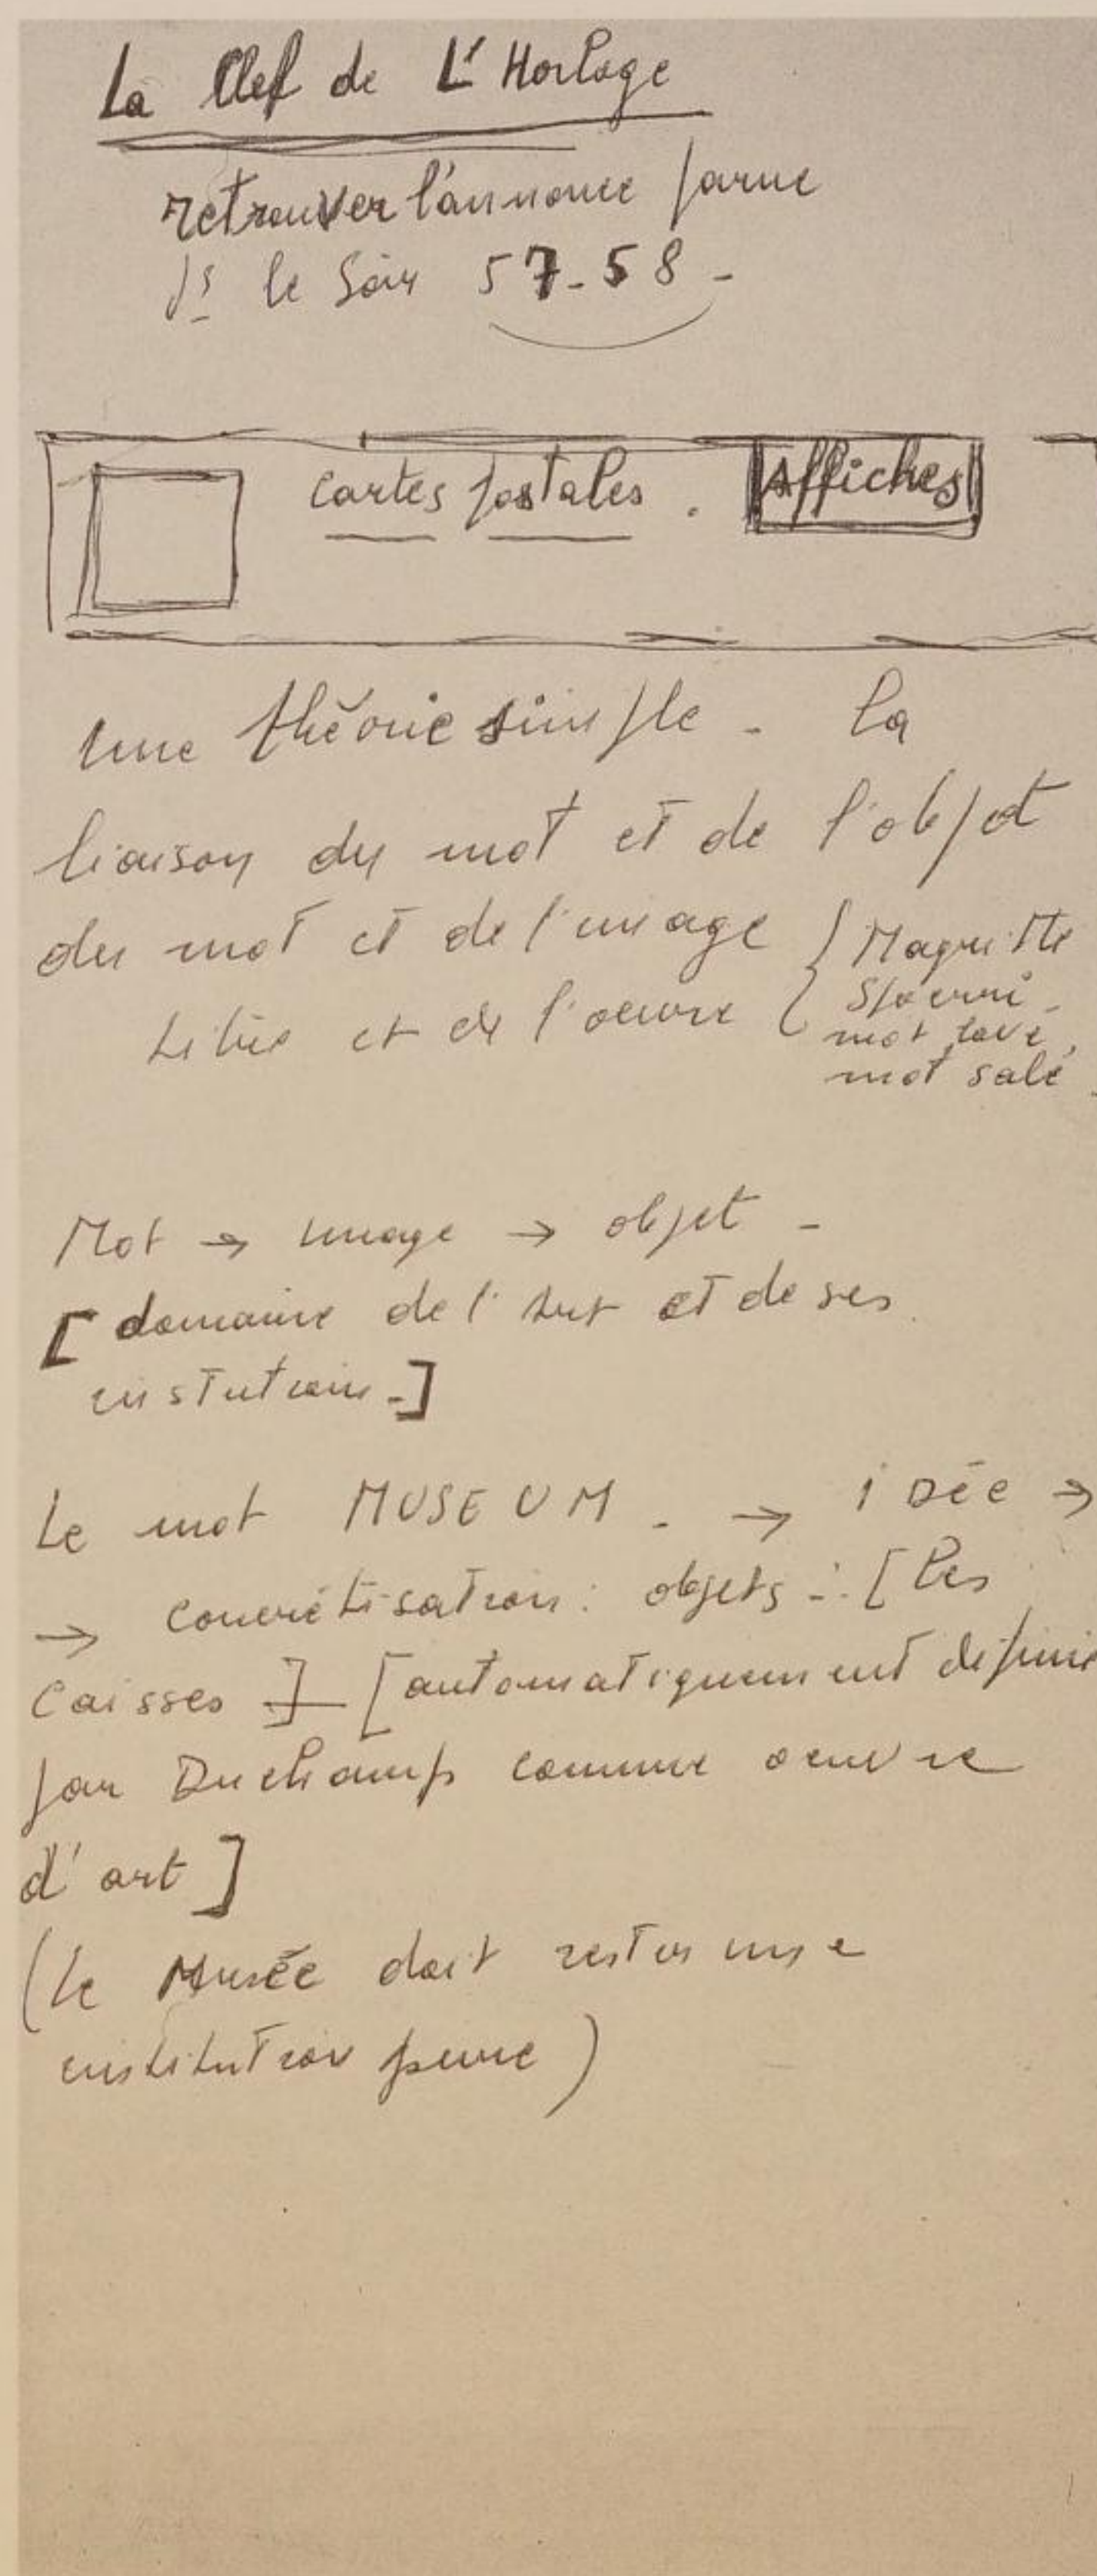 La Clef de L'Horloge
retrouver l'annonce parue
ds le Soir 57-58 -
Cartes postales . Affiches
Une théorie simple - La
liaison du mot et de l'objet
du mot et de l'image { Magritte
titre et de l'oeuvre { Spoerri -
mot lavé,
mot sale
Mot → image → objet -
[domaine de l'art et de ses
institutions -]
Le mot MUSEUM - → iDée →
→ concrétisation: objets -: [les
Caisses] [automatiquement définie
par Duchamp comme oeuvre
d'art]
(Le Musée doit rester une
institution pure)